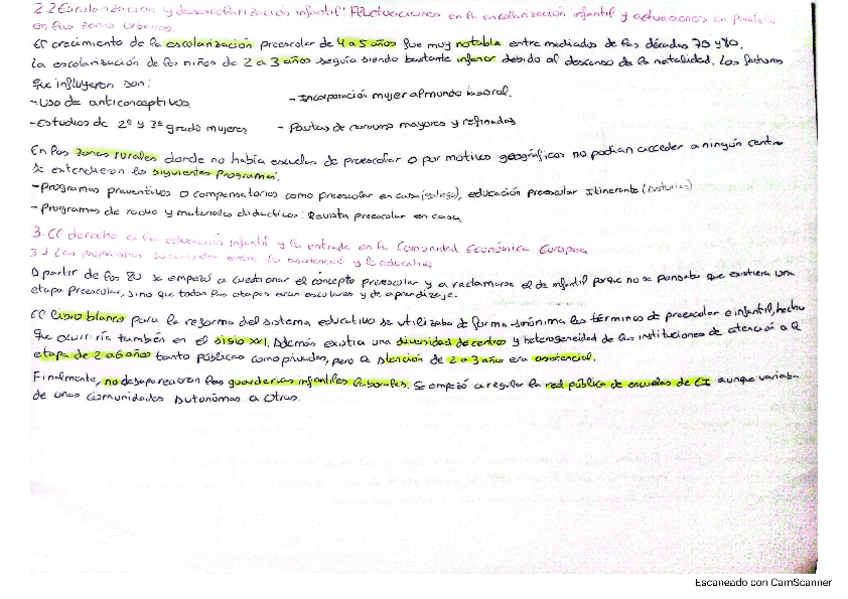 2.2 Escolarización y desescolarización infantil: Fluctuaciones en la escolarización infantil y actuaciones en
en las zonas urbanas.
El crecimiento de la escolarización preescolar de 4 a 5 años fue muy notable entre mediados de las décadas 70 y 80.
La escolarización de los niños de 2 a 3 años seguía siendo bastante inferior debido al descenso de la natalidad. Los factores
que influyeron son:
- Uso de anticonceptivos - Incorporación mujer al mundo laboral.
- Estudios de 2º y 3º grado mujeres - Pautas de consumo mayores y refinadas
En las zonas rurales donde no había escuelas de preescolar o por motivos geográficos no podían acceder a ningún centro
se extendieron los siguientes programas:
- Programas preventivos o compensatorios como preescolar en casa (galego), educación preescolar Itinerante (Asturias)
- Programas de radio y materiales didácticos: Revista preescolar en casa
3. El derecho a la educación infantil y la entrada en la Comunidad Económica Europea
3.1 Las propuestas entre lo asistencial y lo educativo
A partir de los 80 se empezó a cuestionar el concepto preescolar y a reclamarse el de infantil porque no se pensaba que existiera una
etapa preescolar, sino que todas las etapas eran escolares y de aprendizaje.
El libro blanco para la reforma del sistema educativo se utilizaba de forma sinónima los términos de preescolar e infantil, hecho
que ocurriría también en el siglo XXI. Además existía una diversidad de centros y heterogeneidad de las instituciones de atención a la
etapa de 2 a 6 años tanto públicas como privadas, pero la atención de 2 a 3 años era asistencial.
Finalmente, no desaparecieron las guarderías infantiles laborales. Se empezó a regular la red pública de escuelas de EI aunque variaba
de unas Comunidades Autónomas a otras.
Escaneado con CamScanner